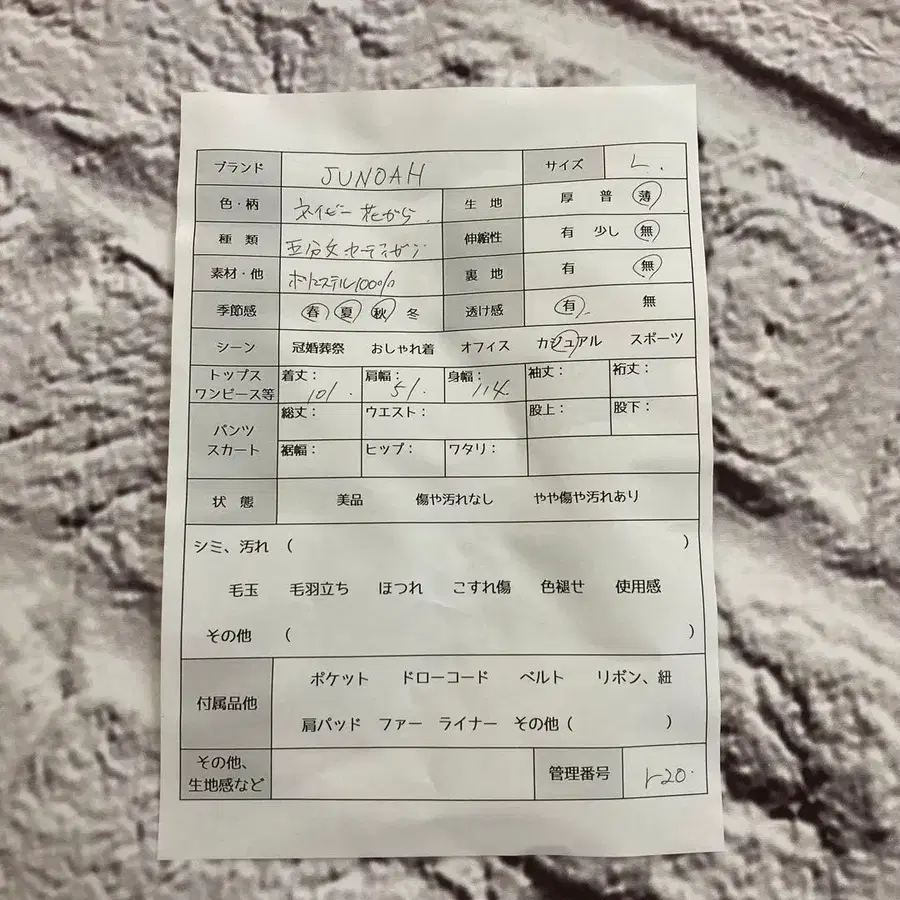 ブランド JUNOAH サイズ L.
色・柄 ネイビー 花がら. 生地 厚 普 薄
種類 五分丈カーディガン 伸縮性 有 少し 無
素材・他 ポリエステル100% 裏地 有 無
季節感 春 夏 秋 冬 透け感 有 無
シーン 冠婚葬祭 おしゃれ着 オフィス カジュアル スポーツ
トップス ワンピース等 着丈: 101. 肩幅: 51. 身幅: 114 袖丈: 裄丈:
パンツ スカート 総丈: ウエスト: 股上: 股下:
裾幅: ヒップ: ワタリ:
状態 美品 傷や汚れなし やや傷や汚れあり
シミ、汚れ ( )
毛玉 毛羽立ち ほつれ こすれ傷 色褪せ 使用感
その他 ( )
付属品他 ポケット ドローコード ベルト リボン、紐
肩パッド ファー ライナー その他 ( )
その他、生地感など 管理番号